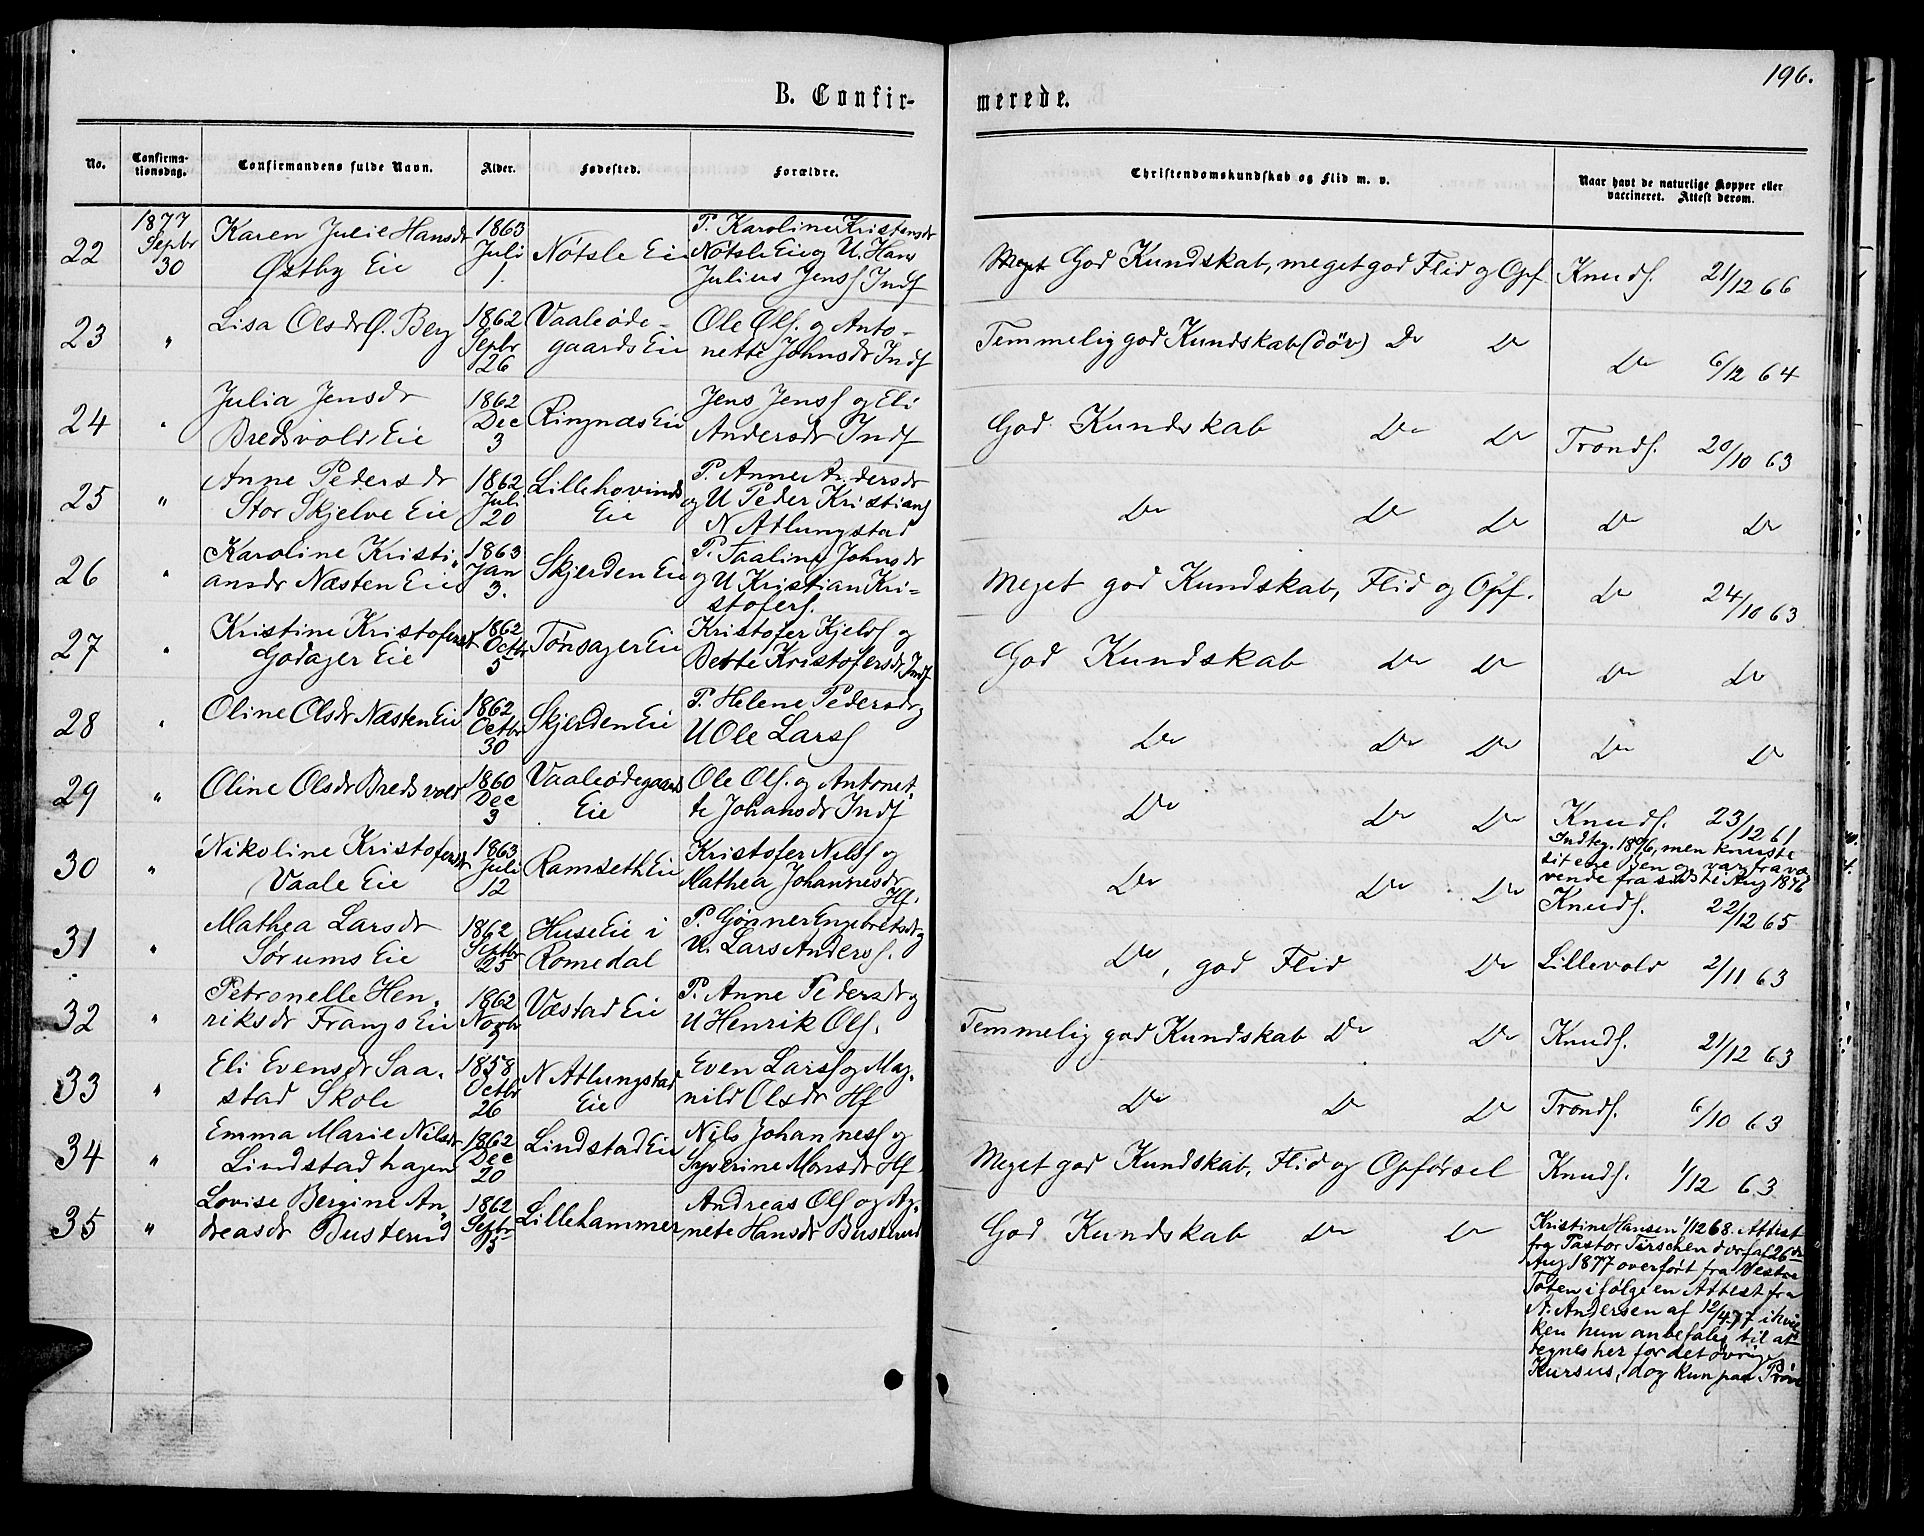 196.
B. Confir-
merede.
No.
Confirma-
tionsdag.
Confirmandens fulde Navn.
Alder.
Fødested.
Forældre.
Christendomskundskab og Flid m. v.
Naar havt de naturlige Kopper eller
vaccineret. Attest derom.
22
1877
Sepbr
30
Karen Julie Hansdr
Østby Eie
1863
Juli
1.
Nøtsle Eie
P. Karoline Kristensdr
Nøtsle Eie og U. Hans
Julius Jenss Indf
Meget God Kundskab, meget god Flid og Opf
Knuds. 21/12 66
23
"
Lisa Olsdr Ø. Berg
1862
Sepbr
26
Vaaleøde-
gaards Eie
Ole Ols. og Anto-
nette Johnsdr Indf
Temmelig god Kundskab (döv) Do Do
Do 6/12 64
24
"
Julia Jensdr
Bredsvolds Eie
1862
Dec
3
Ringnæs Eie
Jens Jenss og Eli
Andersdr Indf
God Kundskab Do Do
Tronds. 20/10 63
25
"
Anne Pedersdr
Stor Skjelve Eie
1862
Juli
20
Lillehovinds
Eie
P. Anne Andersdr
og U Peder Kristians
N Atlungstad
Do Do Do
Do Do
26
"
Karoline Kristi-
ansdr Næsten Eie
1863
Jan
3.
Skjerden Eie
P. Taaline Johnsdr
og U Kristian Kri-
stofers.
Meget god Kundskab, Flid og Opf.
Do 24/10 63
27
"
Kristine Kristofersdr
Godager Eie
1862
Octbr
5
Tönsager Eie
Kristofer Kjelds og
Dette Kristofersdr Indf
God Kundskab Do Do
Do Do
28
"
Oline Olsdr Næsten Eie
1862
Octbr
30
Skjerden Eie
P. Helene Pedersdr og
U Ole Larss
Do Do Do
Do Do
29
"
Oline Olsdr Bredsvold
1860
Dec
3
Vaaleødegaards
Eie
Ole Ols. og Antonet-
te Johansdr Indf
Do Do Do
Knuds. 23/12 61
30
"
Nikoline Kristofersdr
Vaale Eie
1863
Juli
12
Ramseth Eie
Kristofer Nilss og
Mathea Johannesdr
Hf.
Do Do Do
Indteg. 1876, men knuste
sit ene Ben og var fravæ-
vende fra sidste Aug 1876
Knuds. 22/12 65
31
"
Mathea Larsdr
Sørums Eie
1862
Septbr
25
Huse Eie i
Romedal
P. Gønner Engebretsdr og
U. Lars Anderss.
Do, god Flid Do
Lillevold 2/11 63
32
"
Petronelle Hen-
riksdr Frangs Eie
1862
Novbr
Væstad Eie
P. Anne Pedersdr og
U Henrik Ols.
Temmelig god Kundskab Do Do
Knuds. 21/12 63
33
"
Eli Evensdr Saa-
stad Skole
1858
Octbr
26
N Atlungstad
Eie
Even Larss og Mag-
nild Olsdr Hf
Do Do Do
Tronds. 6/10 63
34
"
Emma Marie Nilsdr
Lindstadhagen
1862
Dec
20
Lindstad Eie
Nils Johanness og
Syverine Monsdr Hf.
Meget god Kundskab, Flid og Opförsel
Knuds. 1/12 63
35
"
Lovise Bergine An-
dreasdr Busterud
1862
Sepbr
15
Lillehammer
Andreas Ols og Ag-
nete Hansdr Busterud
God Kundskab Do Do
Kristine Hansen 1/12 68. Attest
fra Pastor Terschendorf af 26de
Aug 1877 overført fra Vestre
Toten i følge en Attest fra
N. Andersen af 12/4 77 i hvil
ken hun anbefales til at
tegnes her for det øvrige
Kursus, dog kun paa Prøve